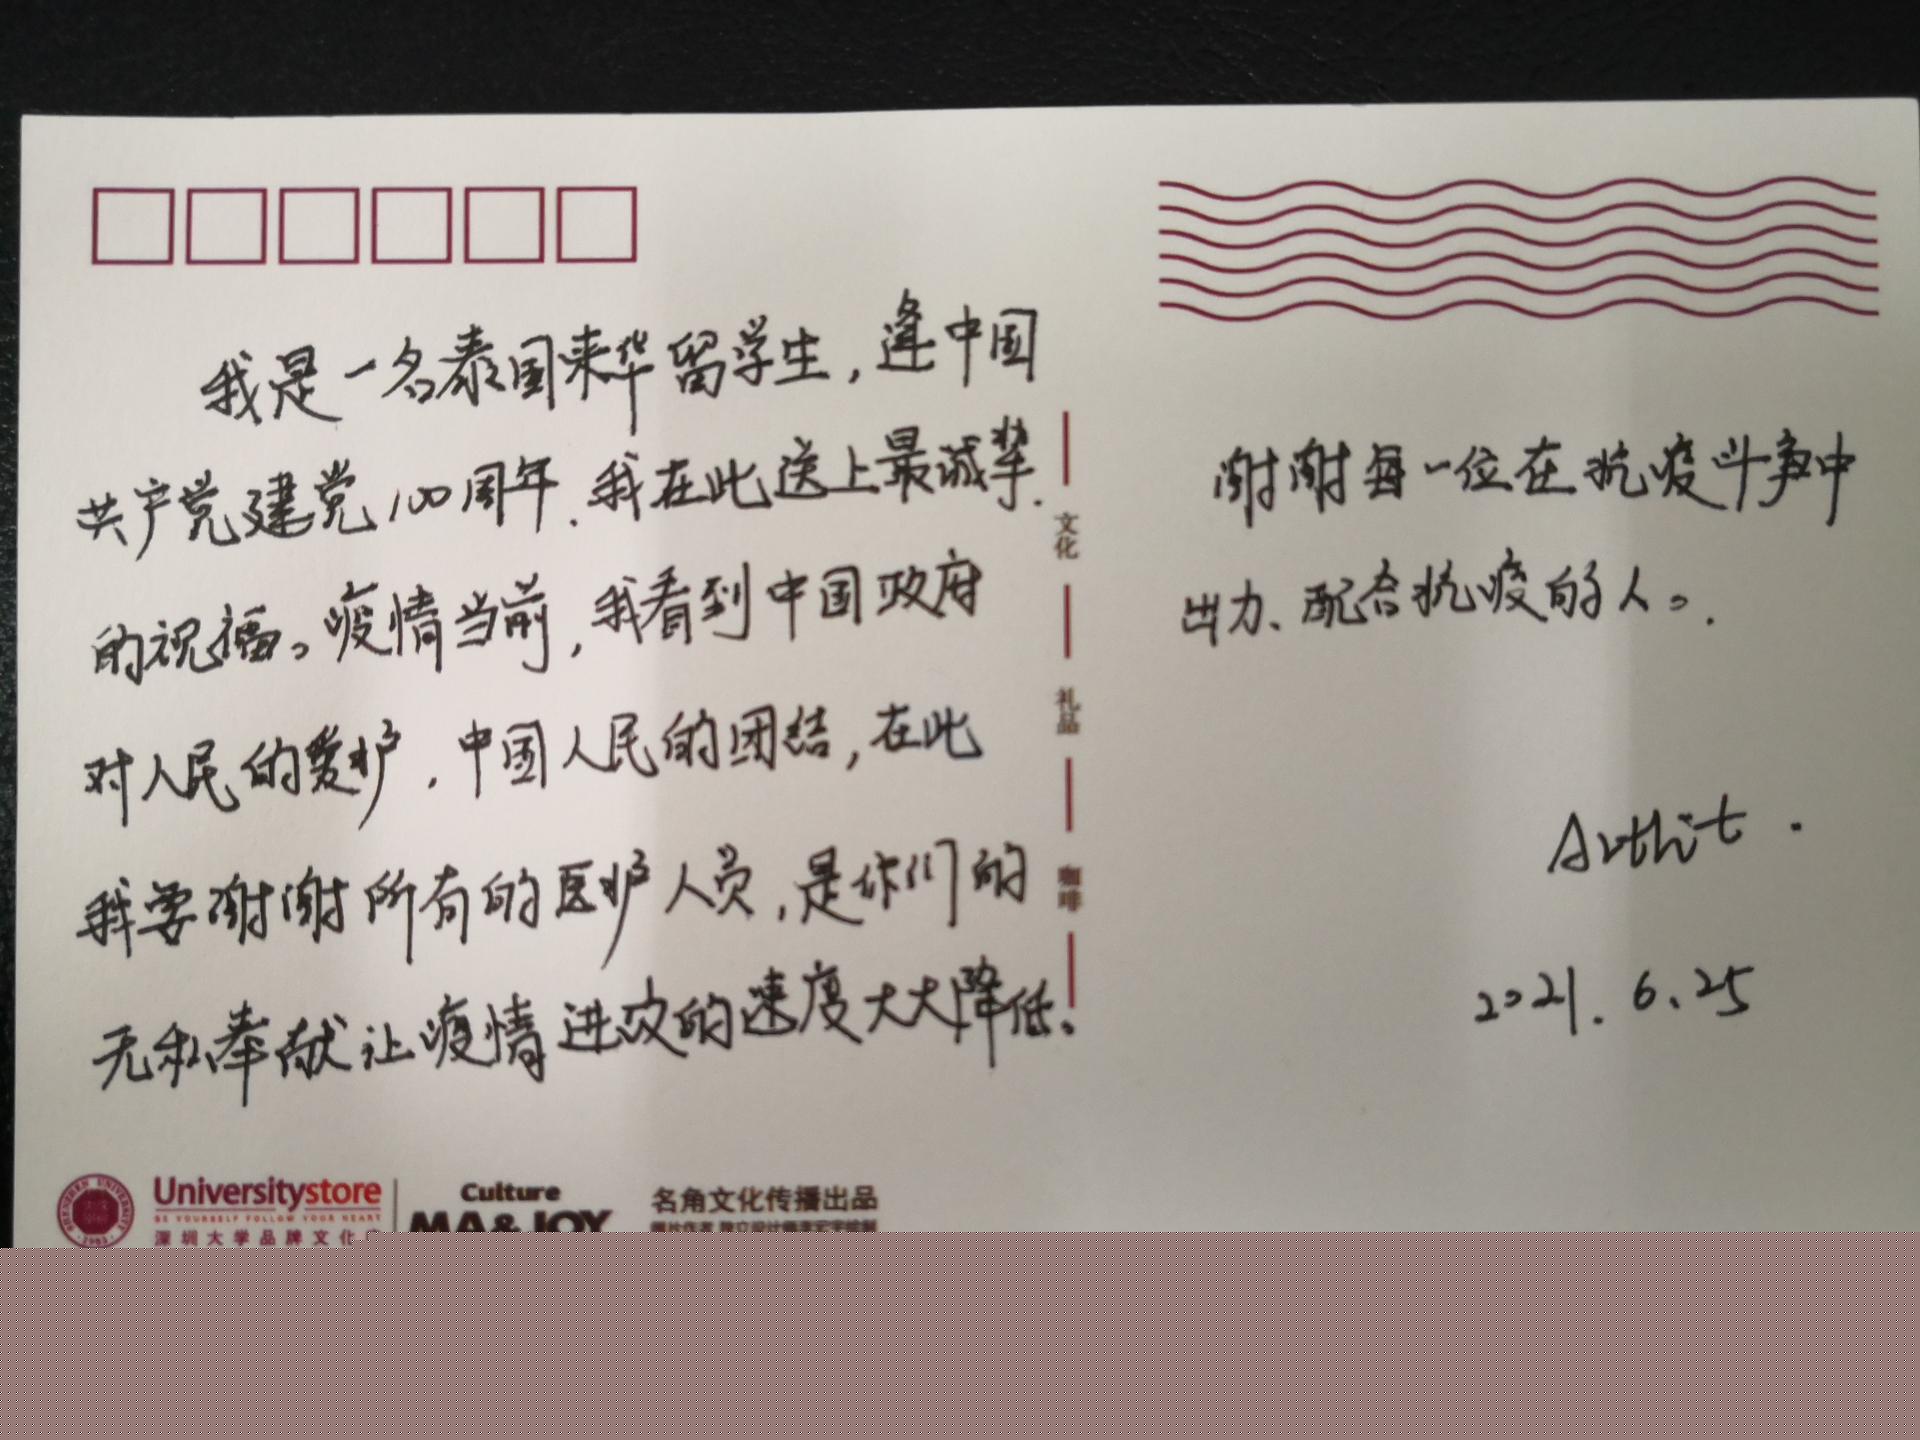 我是一名泰国来华留学生，逢中国
共产党建党100周年，我在此送上最诚挚
的祝福。疫情当前，我看到中国政府
对人民的爱护，中国人民的团结，在此
我要谢谢所有的医护人员，是你们的
无私奉献让疫情进攻的速度大大降低。
谢谢每一位在抗疫斗争中
出力、配合抗疫的人。
Arthit.
2021.6.25
文化
礼品
咖啡
Universitystore
BE YOURSELF FOLLOW YOUR HEART
深圳大学品牌文化
Culture
MA&JOY
名角文化传播出品
SHENZHEN UNIVERSITY
1983